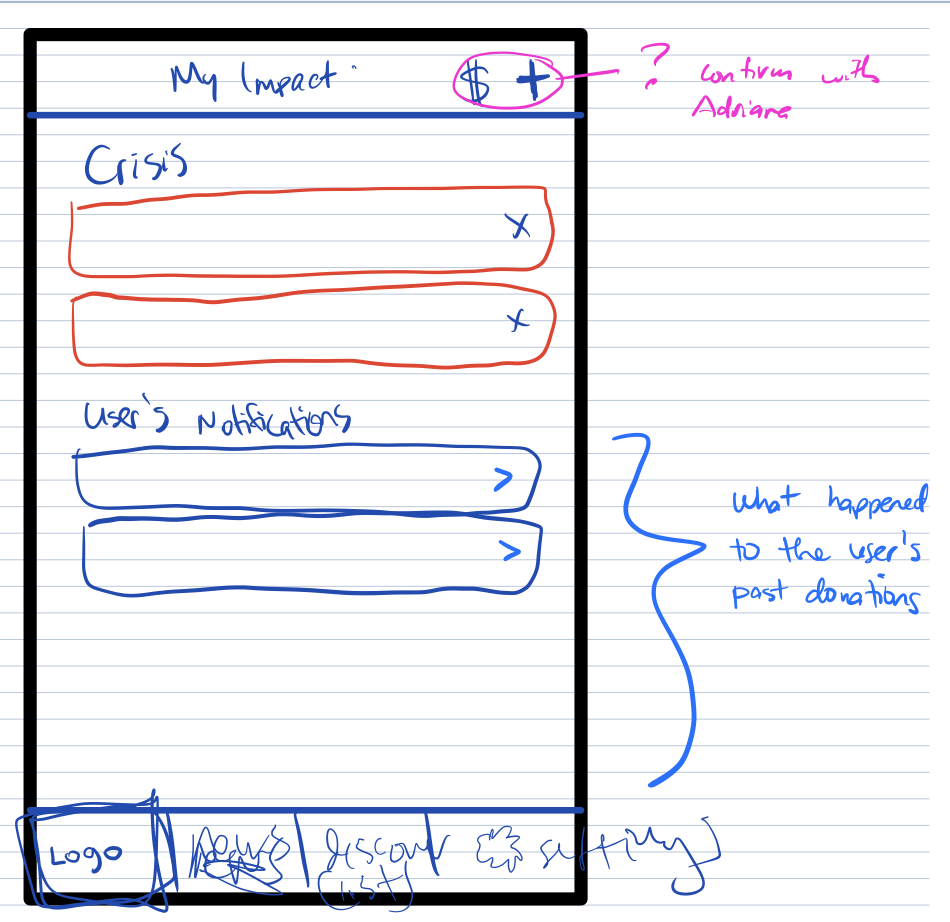 My Impact
$ +
? confirm with
Adriana
Crisis
x
x
User's Notifications
>
>
what happened
to the user's
past donations
LOGO
News
discover
(list)
settings